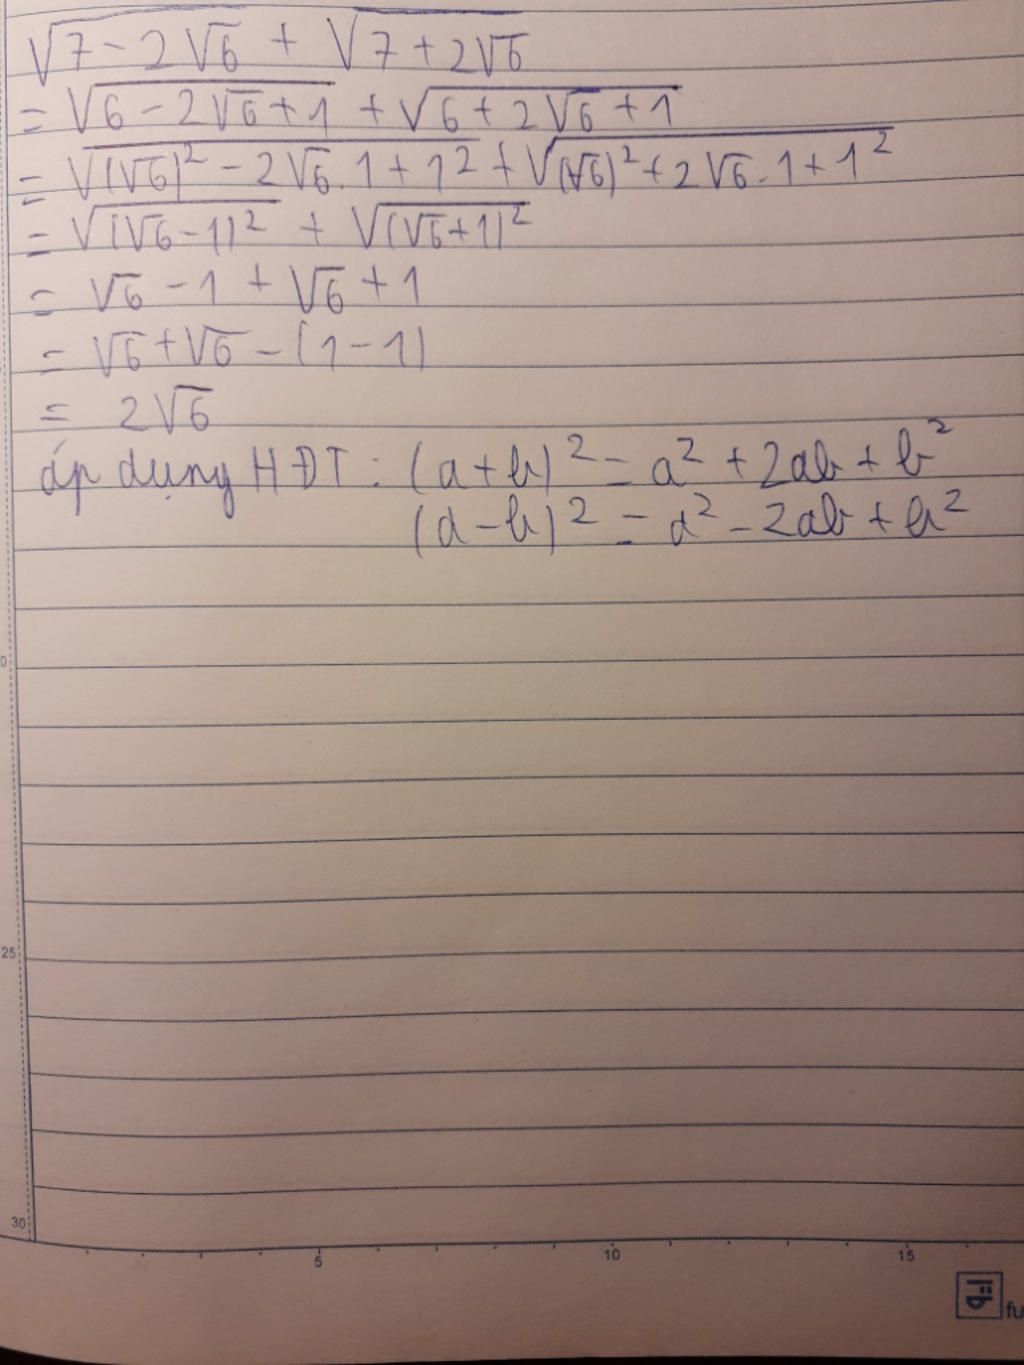 √7 - 2√6 + √7 + 2√6
= √6 - 2√6 + 1 + √6 + 2√6 + 1
= √(√6)² - 2√6 . 1 + 1² + √(√6)² + 2√6 . 1 + 1²
= √(√6 - 1)² + √(√6 + 1)²
= √6 - 1 + √6 + 1
= √6 + √6 - (1 - 1)
= 2√6
áp dụng HĐT : (a + b)² = a² + 2ab + b²
(a - b)² = a² - 2ab + b²
0
25
30
5 10 15
fu